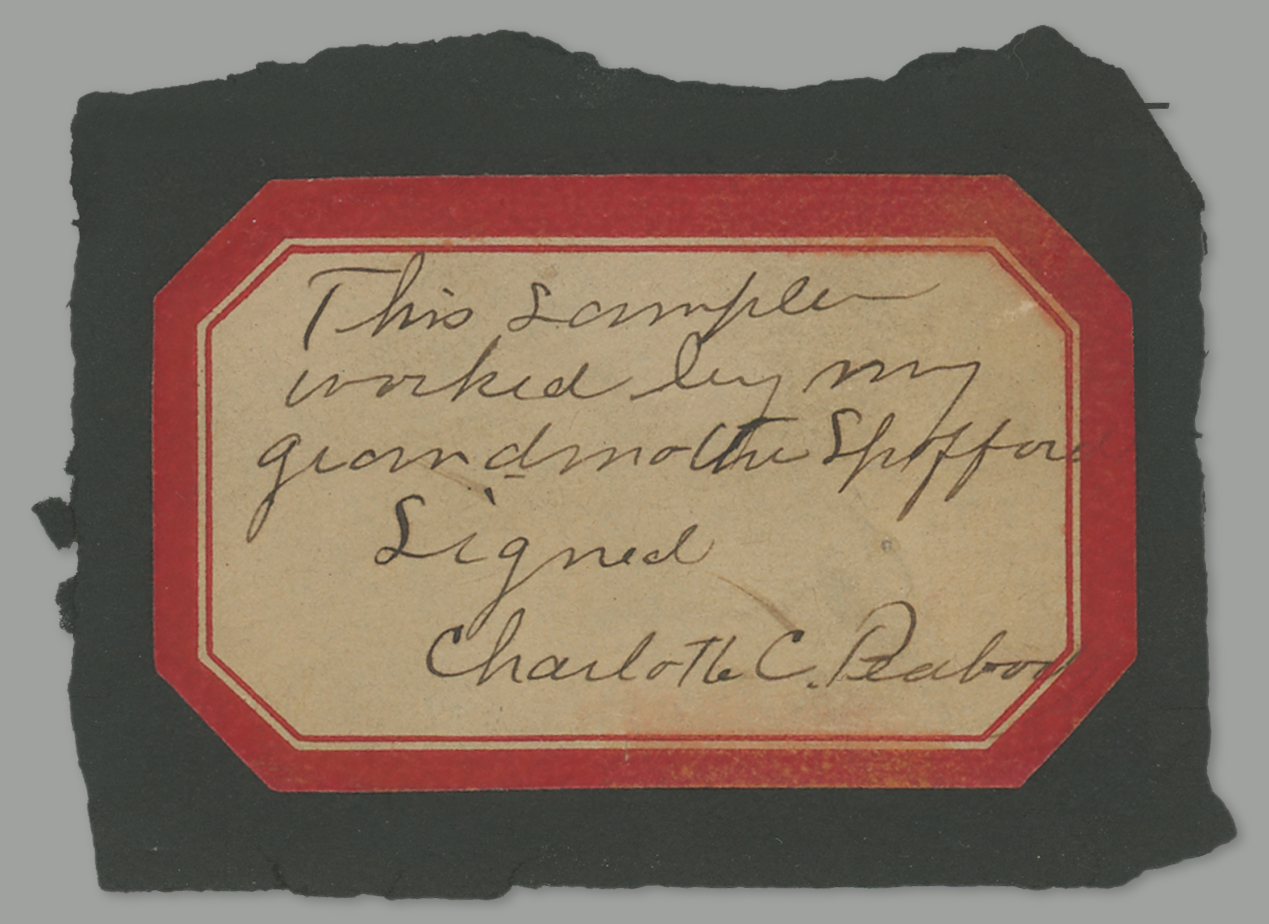 This Sampler
worked by my
grandmother Spofford
Signed
Charlotte C. Peabody